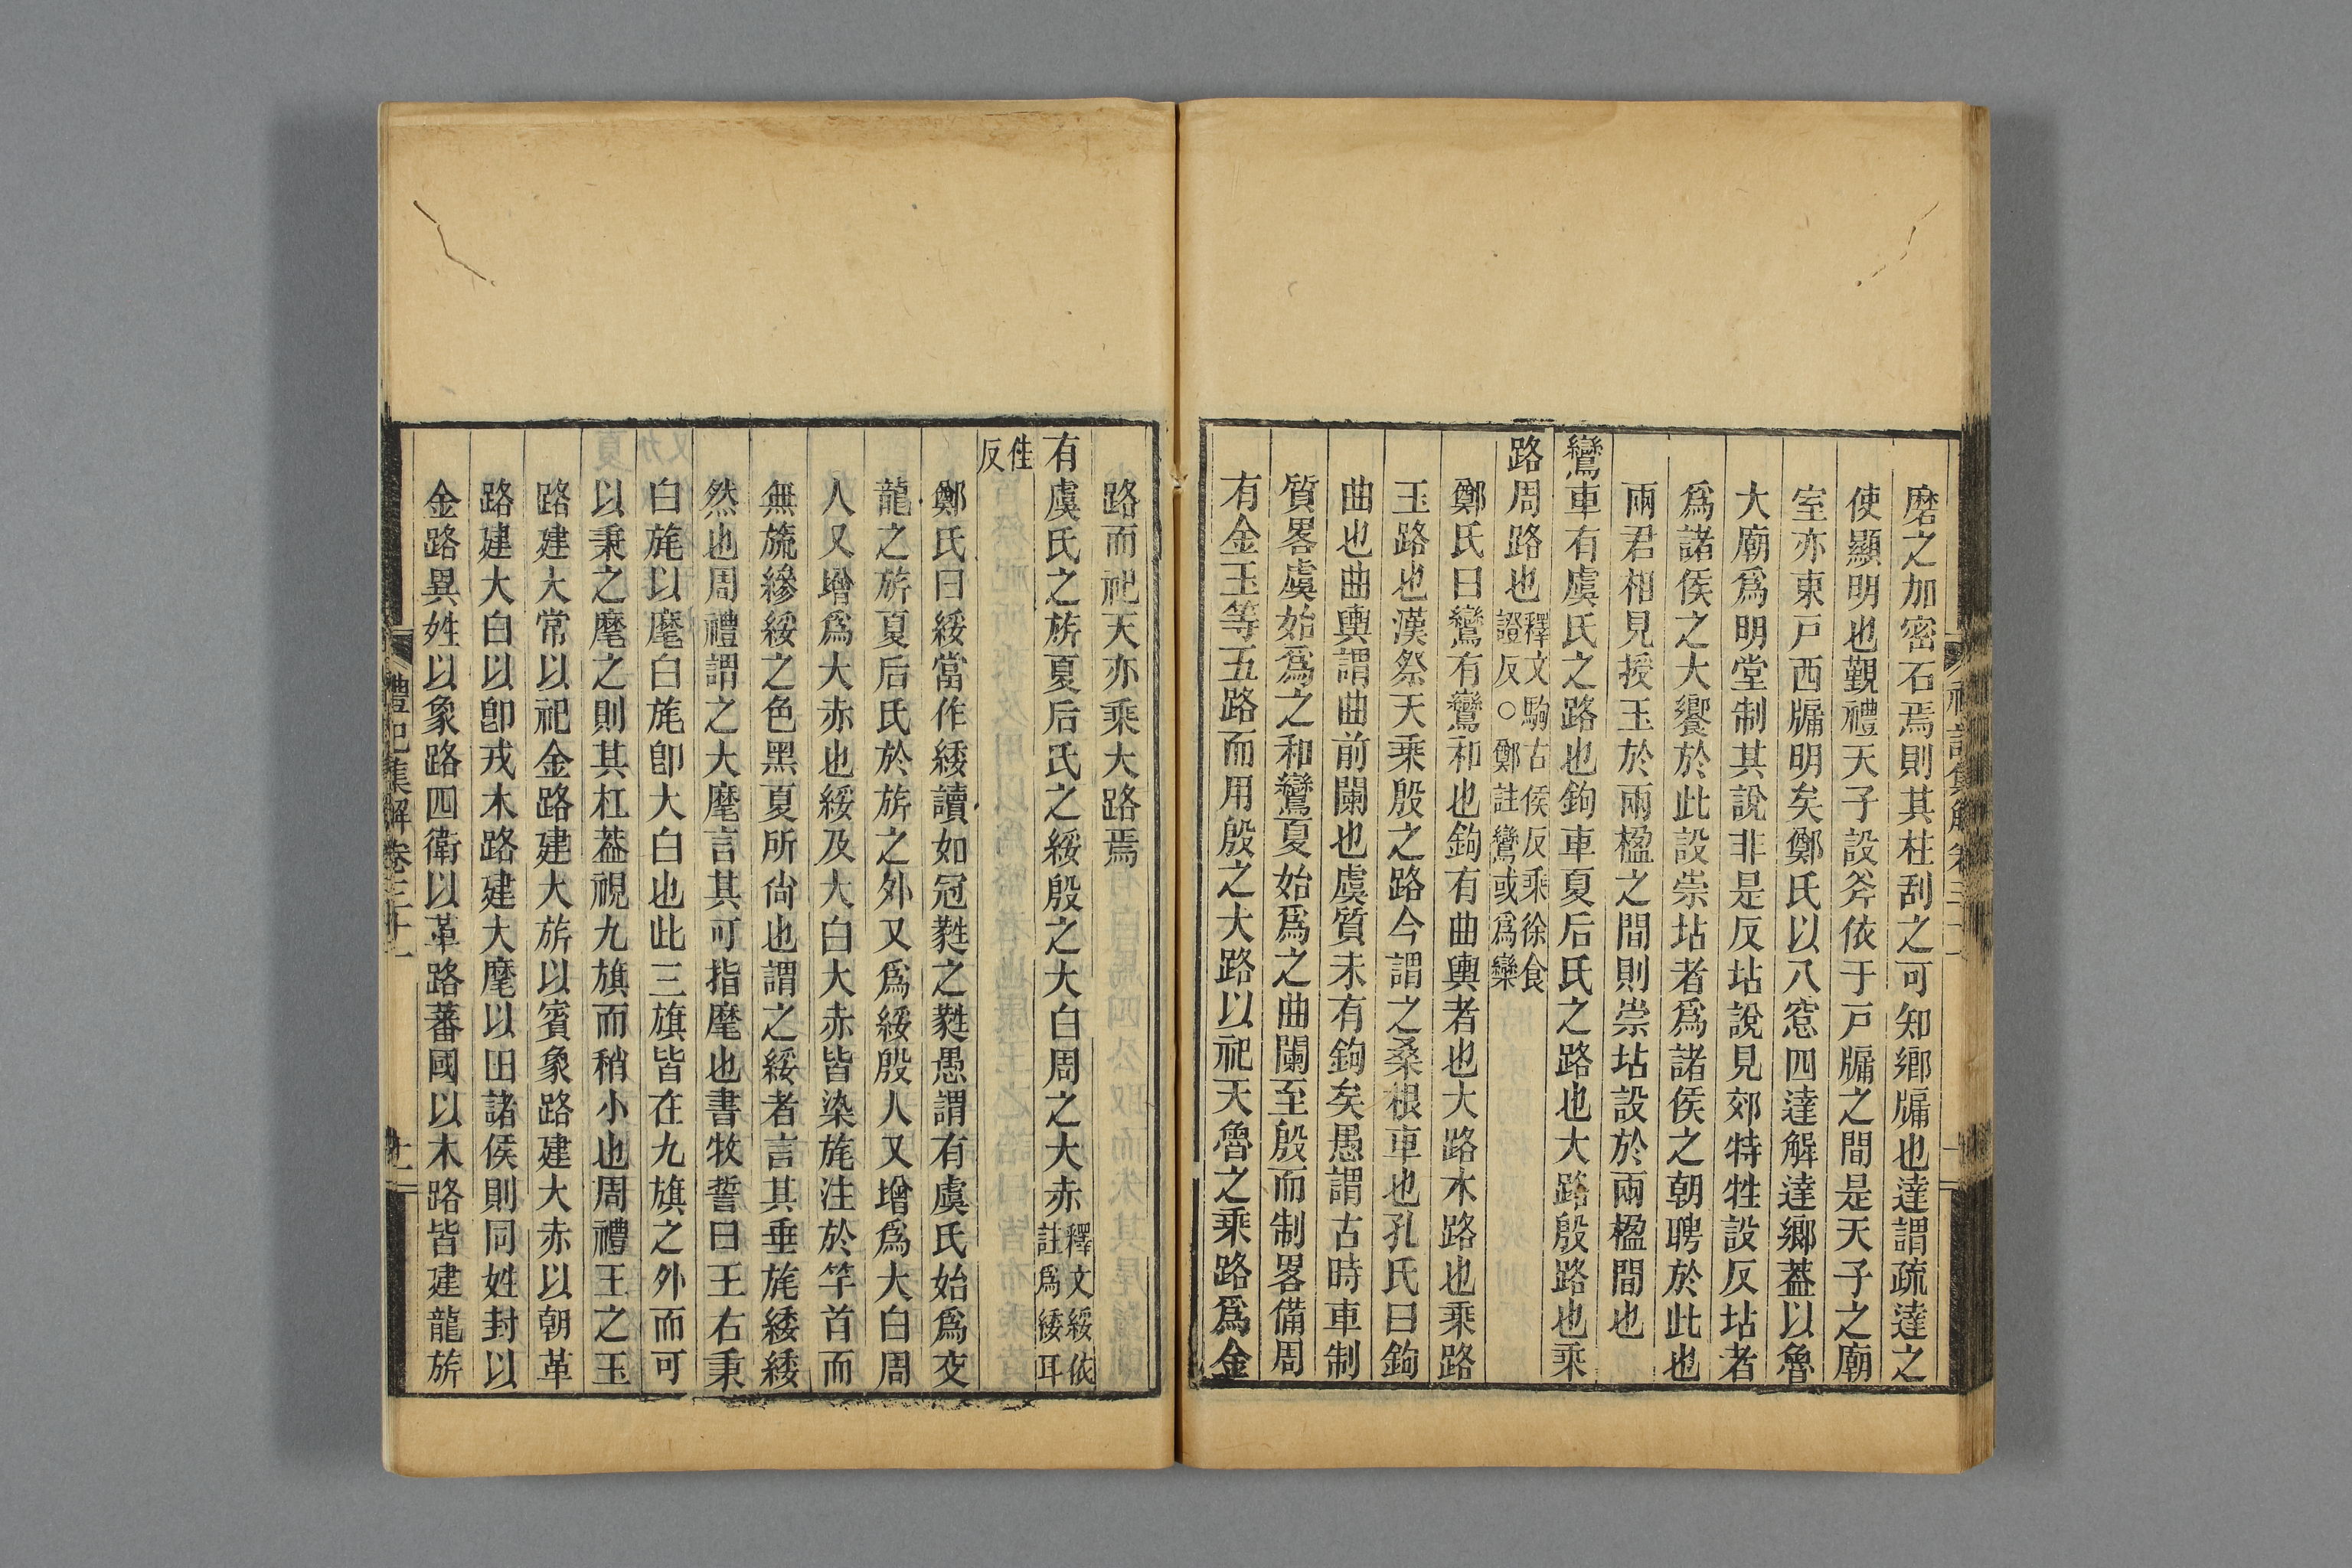 磨之加密石焉則其柱刮之可知鄉牖也達謂疏達之
使顯明也覲禮天子設斧依于戸牖之間是天子之廟
室亦東戸西牖明矣鄭氏以八窓四達解達鄉葢以魯
大廟爲明堂制其說非是反坫說見郊特牲設反坫者
爲諸侯之大饗於此設崇坫者爲諸侯之朝聘於此也
兩君相見授玉於兩楹之間則崇坫設於兩楹間也
鸞車有虞氏之路也鉤車夏后氏之路也大路殷路也乘
路周路也釋文駒古侯反乘徐食
證反○鄭註鸞或爲欒
鄭氏曰鸞有鸞和也鉤有曲輿者也大路木路也乘路
玉路也漢祭天乘殷之路今謂之桑根車也孔氏曰鉤
曲也曲輿謂曲前闌也虞質未有鉤矣愚謂古時車制
質畧虞始爲之和鸞夏始爲之曲闌至殷而制畧備周
有金玉等五路而用殷之大路以祀天魯之乘路爲金
路而祀天亦乘大路焉
有虞氏之旂夏后氏之綏殷之大白周之大赤釋文綏依
註爲緌耳
隹
反
鄭氏曰綏當作緌讀如冠蕤之蕤愚謂有虞氏始爲交
龍之旂夏后氏於旂之外又爲綏殷人又增爲大白周
人又增爲大赤也綏及大白大赤皆染旄注於竿首而
無旒縿綏之色黑夏所尙也謂之綏者言其垂旄緌緌
然也周禮謂之大麾言其可指麾也書牧誓曰王右秉
白旄以麾白旄卽大白也此三旗皆在九旗之外而可
以秉之麾之則其杠葢視九旗而稍小也周禮王之玉
路建大常以祀金路建大旂以賓象路建大赤以朝革
路建大白以卽戎木路建大麾以田諸侯則同姓封以
金路異姓以象路四衛以革路蕃國以木路皆建龍旂
禮記集解 卷三十一
十一